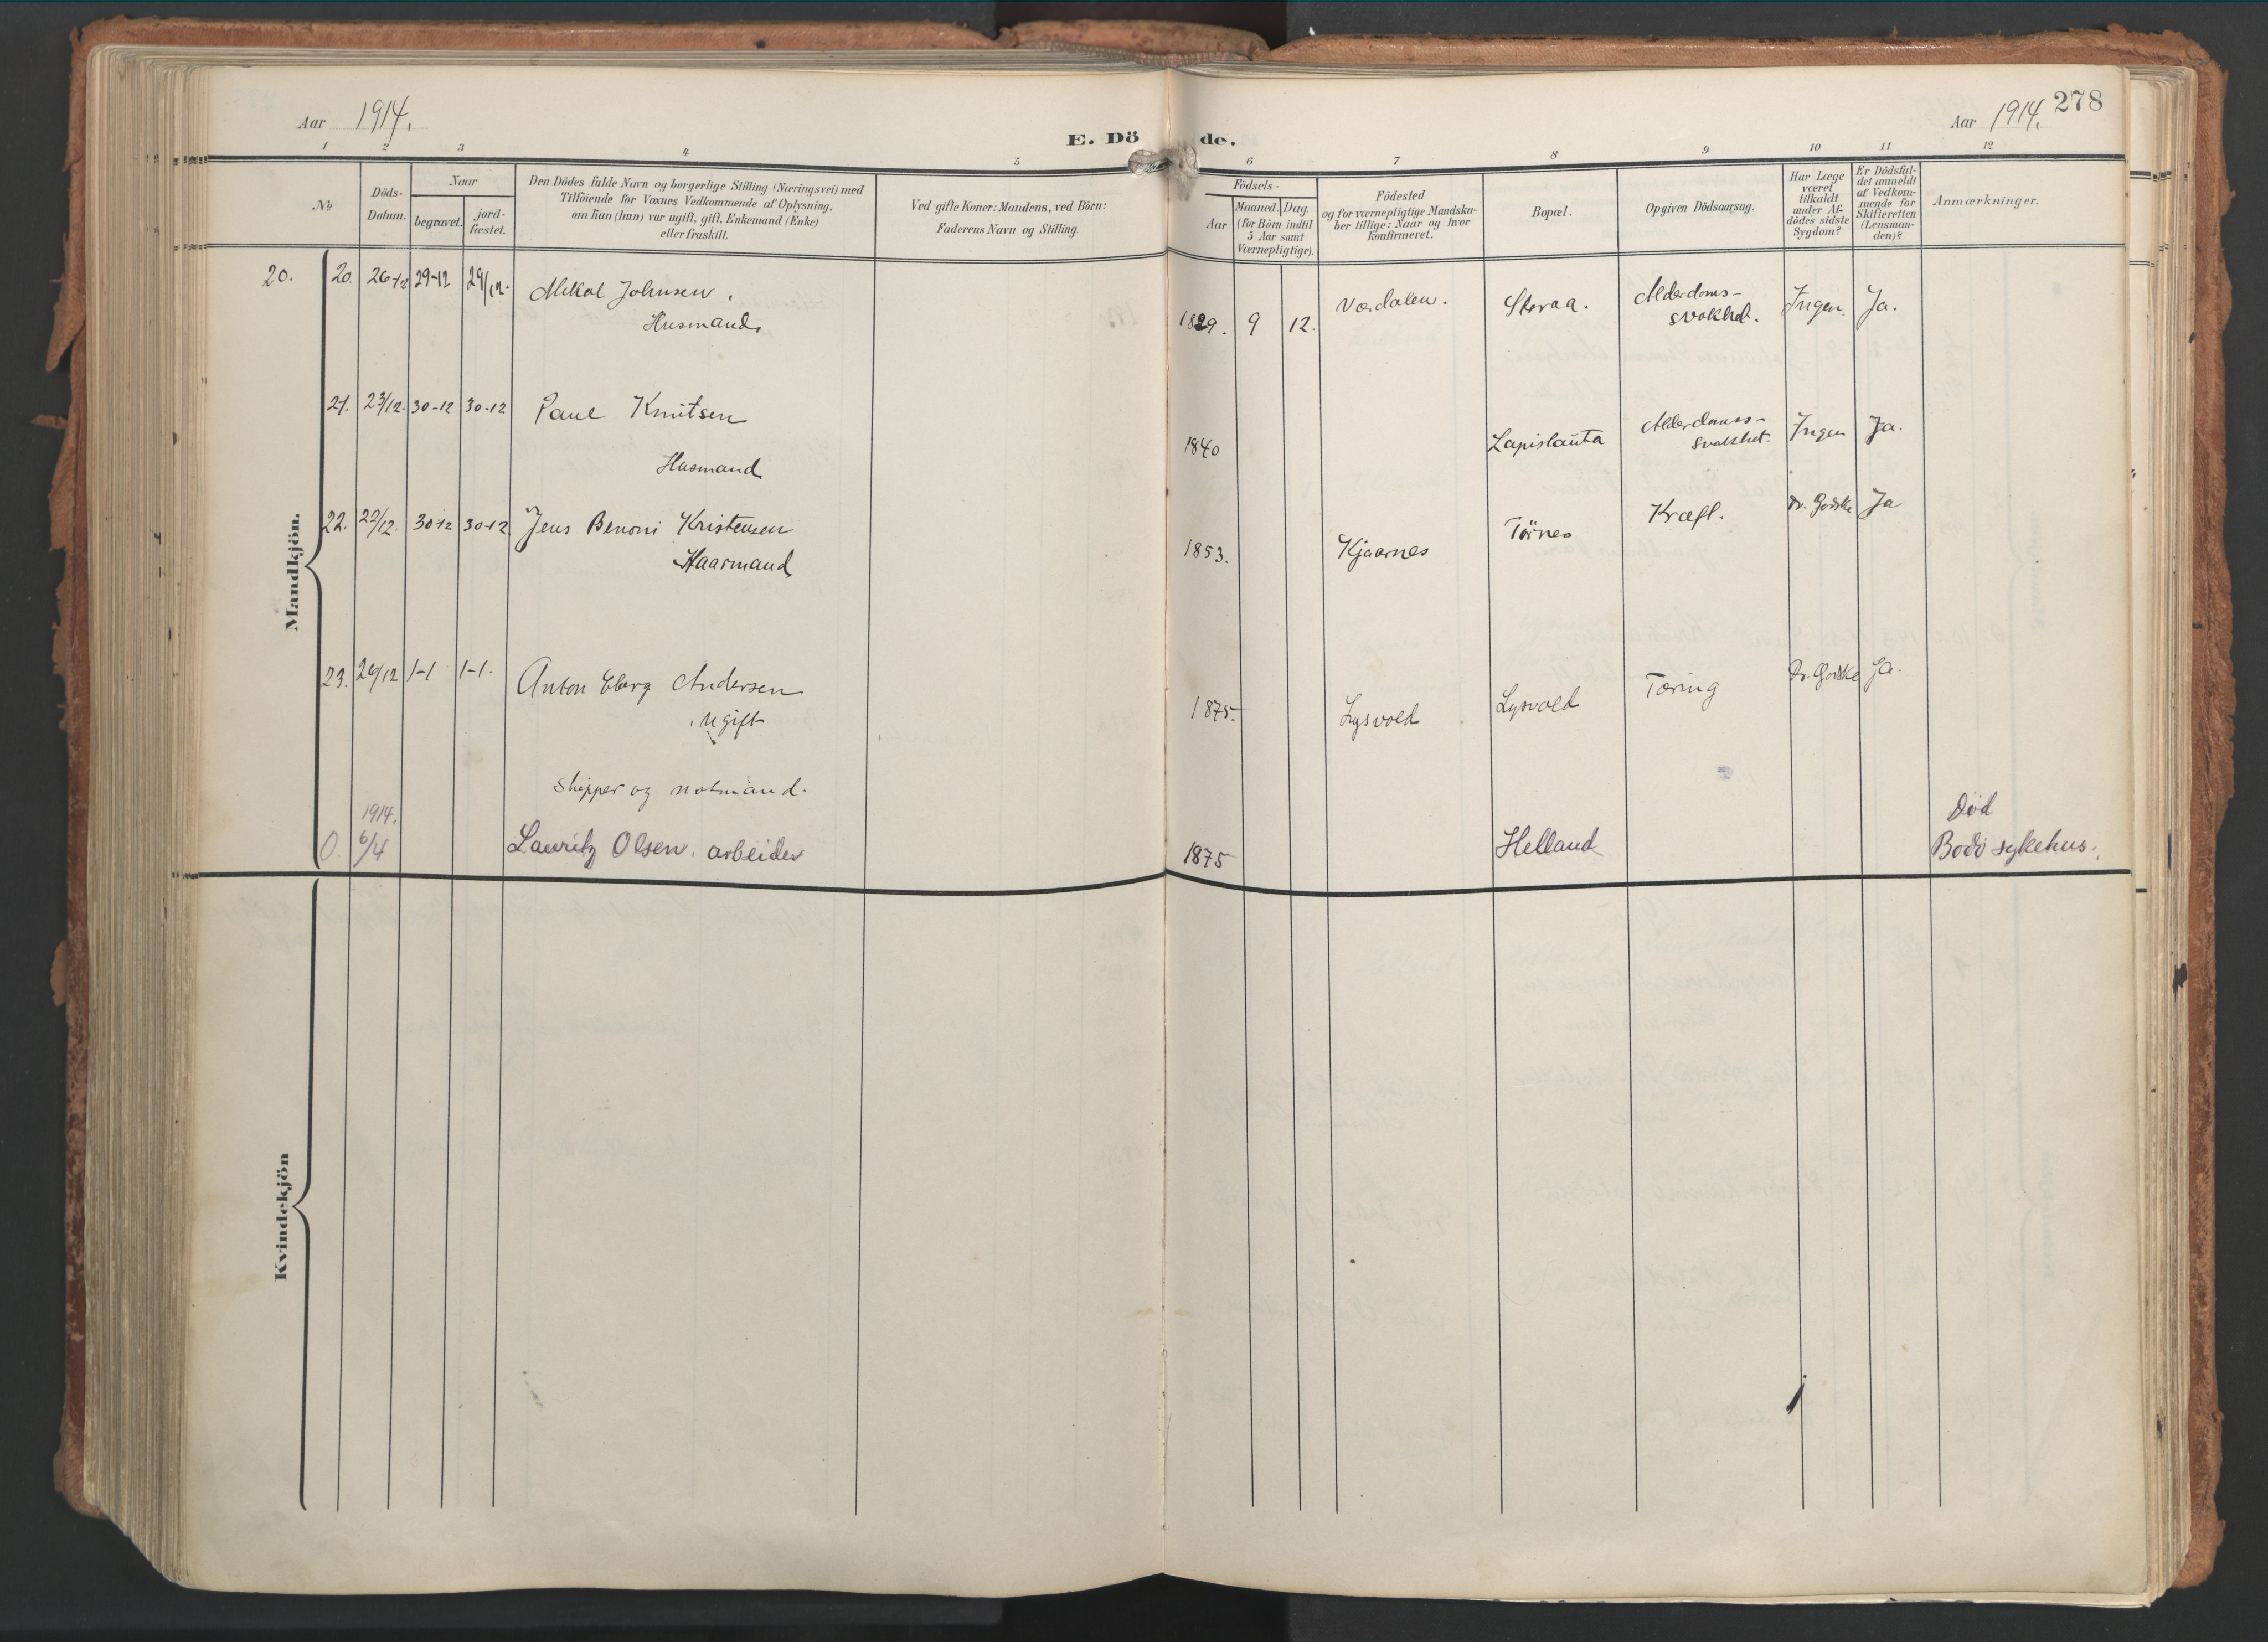 Aar 1914.
E. Döde.
Aar 1914. 278
1 2 3 4 5 6 7 8 9 10 11 12
No.
Döds-
Datum.
Naar
begravet.
jord-
fæstet.
Den Dödes fulde Navn og borgerlige Stilling (Næringsvei) med
Tilföiende for Voxnes Vedkommende af Oplysning,
om han (hun) var ugift, gift, Enkemand (Enke)
eller fraskilt.
Ved gifte Koner: Mandens, ved Börn:
Faderens Navn og Stilling.
Födsels-
Aar
Maaned. Dag.
(for Börn indtil
5 Aar samt
Værnepligtige).
Födested
og for værnepligtige Mandska-
ber tillige: Naar og hvor
konfirmeret.
Bopæl.
Opgiven Dödsaarsag.
Har Læge
været
tilkaldt
under Af-
dödes sidste
Sygdom?
Er Dödsfal-
det anmeldt
af Vedkom-
mende for
Skifteretten
(Lensman-
den)?
Anmærkninger.
Mandkjön.
20. 20. 26-12 29-12 29/12. Mikal Johnsen. 1829. 9 12. Værdalen. Storaa. Alderdoms- Ingen Ja.
Husmand. svakhet.
21. 23/12. 30-12 30-12 Paul Knutsen 1840 Lapislauta Alderdomss- Ingen Ja.
Husmand svakhet.
22. 22/12. 30-12 30-12 Jens Benoni Kristensen 1853. Kjaarnes Törnes Kræft. Dr. Godske Ja
Haarmand
23. 26/12 1-1 1-1. Anton Andersen 1875. Lysvold Lysvold Tæring Dr. Godske Ja.
ugift
Skipper og notmand.
1914. Död
0. 6/4 Lauritz Olsen. arbeider 1875 Helland Bodö sykehus.
Kvindekjön